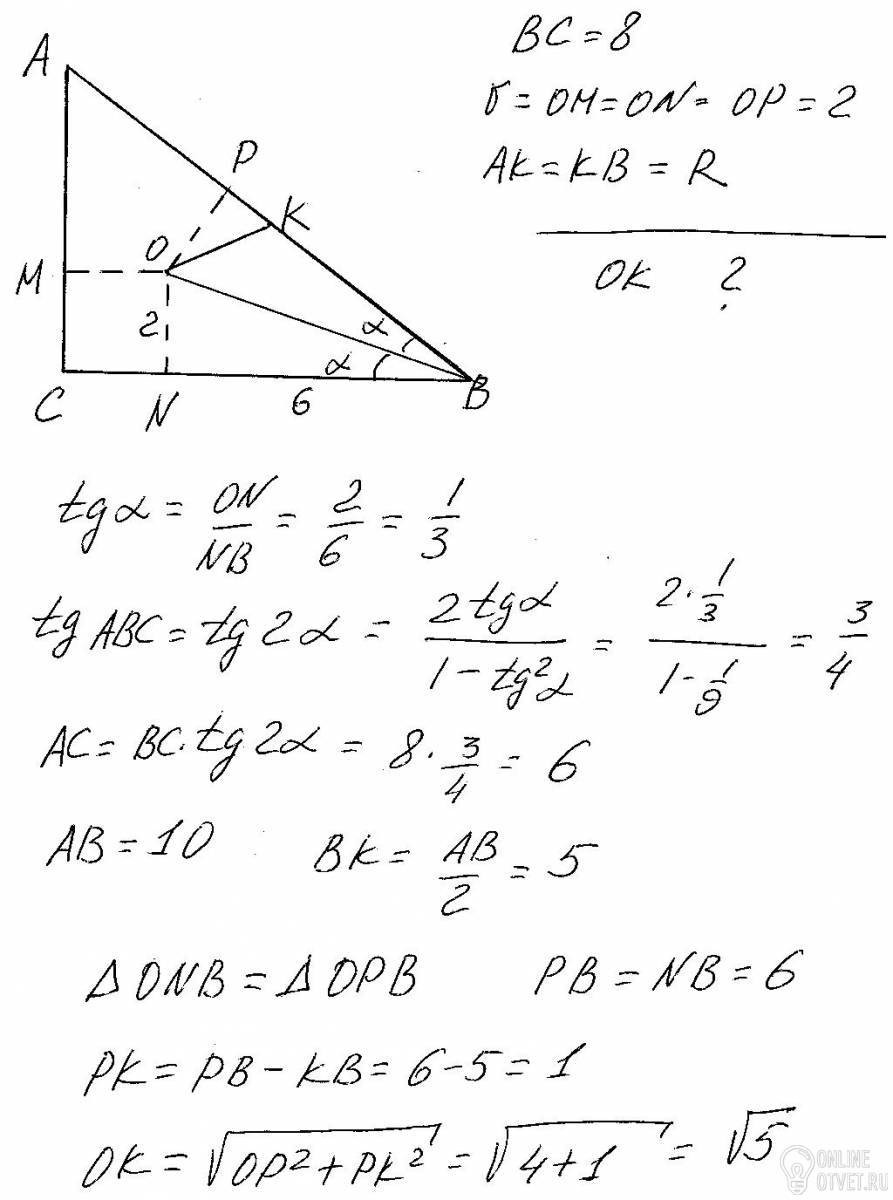 BC = 8
r = OM = ON = OP = 2
AK = KB = R
OK ?
A
P
K
O
M
2
α
α
C N 6 B
tg α = ON/NB = 2/6 = 1/3
tg ABC = tg 2α = 2 tg α / (1 - tg²α) = 2 · 1/3 / (1 - 1/9) = 3/4
AC = BC · tg 2α = 8 · 3/4 = 6
AB = 10 BK = AB/2 = 5
Δ ONB = Δ OPB PB = NB = 6
PK = PB - KB = 6 - 5 = 1
OK = √(OP² + PK²) = √(4 + 1) = √5
ONLINE
OTVET.RU